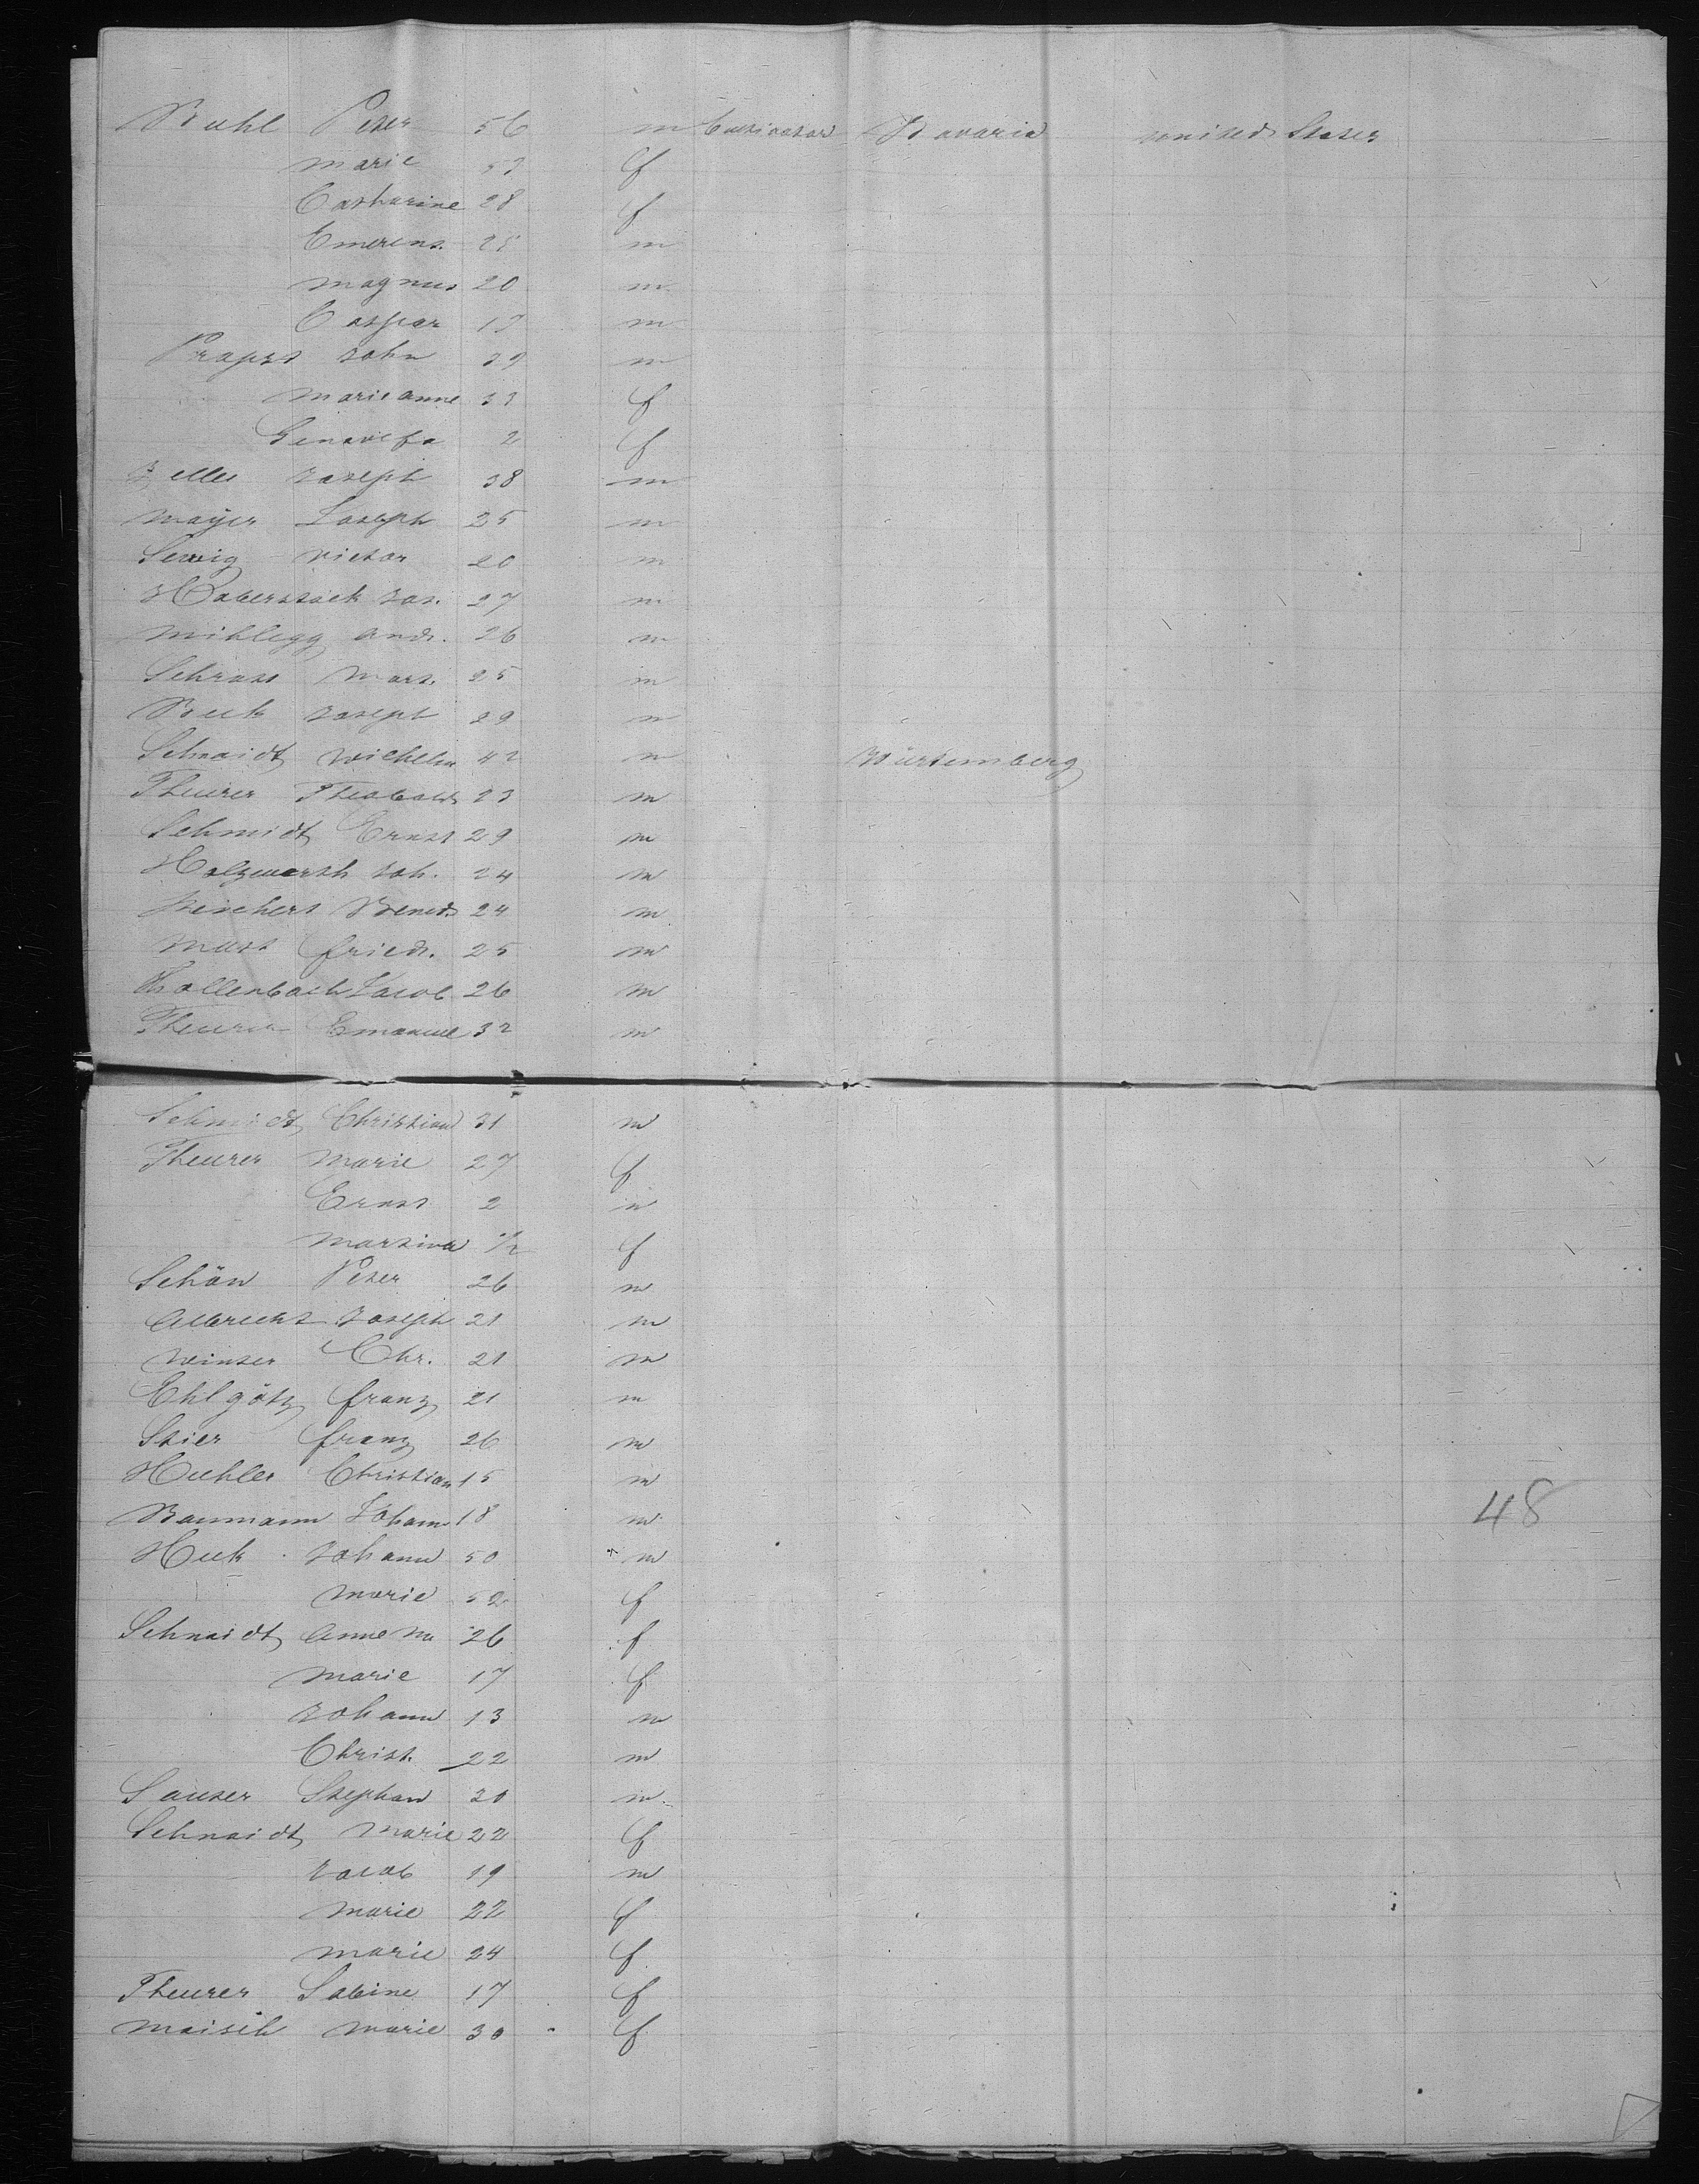 Buhl Peter 56 m Cultivator Bavaria United States
Marie 57 f
Catharine 28 f
Emerenz. 25 m
Magnus 20 m
Caspar 17 m
Prapst John 39 m
Marieanne 33 f
Genovefa 2 f
Zeller Joseph 38 m
Mayer Joseph 25 m
Victor 20 m
Haberstock Jos. 27 m
Mihlegg And. 26 m
Mart. 25 m
Beck Joseph 29 m
Schnaidt Wilhelm 42 m Würtemberg
Theurer Theobald 23 m
Schmidt Ernst 29 m
Holzwarth Joh. 24 m
Bened. 24 m
Mast Fried. 25 m
Hollenbach Jacob 26 m
Theurer Emanuel 32 m
Schmidt Christian 31 m
Theurer Marie 27 f
Ernst 2 m
Martina 1/2 f
Schön Peter 26 m
Albrecht Joseph 21 m
Winter Chr. 21 m
Ehlgötz Franz 21 m
Stier Franz 26 m
Huhler Christian 15 m
Baumann Johann 18 m
48
Huck Johann 50 m
Marie 52 f
Schnaidt Anne M 26 f
Marie 17 f
Johann 13 m
Christ. 22 m
Sauter Stephan 30 m
Schnaidt Marie 22 f
Jacob 19 m
Marie 22 f
Marie 24 f
Theurer Sabine 17 f
Maisch Marie 30 f